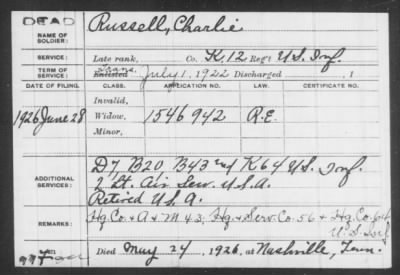 DEAD
NAME OF SOLDIER: Russell, Charlie
SERVICE: Late rank, Co. K, 12 Reg't U.S. Inf.
TERM OF SERVICE: Enlisted Trans. July 1, 1922 Discharged , 1
DATE OF FILING. CLASS. APPLICATION NO. LAW. CERTIFICATE NO.
Invalid,
1926 June 28 Widow, 1546942 R.E.
Minor,
ADDITIONAL SERVICES: D 7 B 20 B 43 and K 64 U.S. Inf.
2 Lt. Air Serv. U.S.A.
Retired U.S.A.
REMARKS: Hq. Co + A + M 43, Hq + Serv. Co. 56 + Hq. Co. 64
U.S. Inf.
Died May 24, 1926, at Nashville, Tenn.